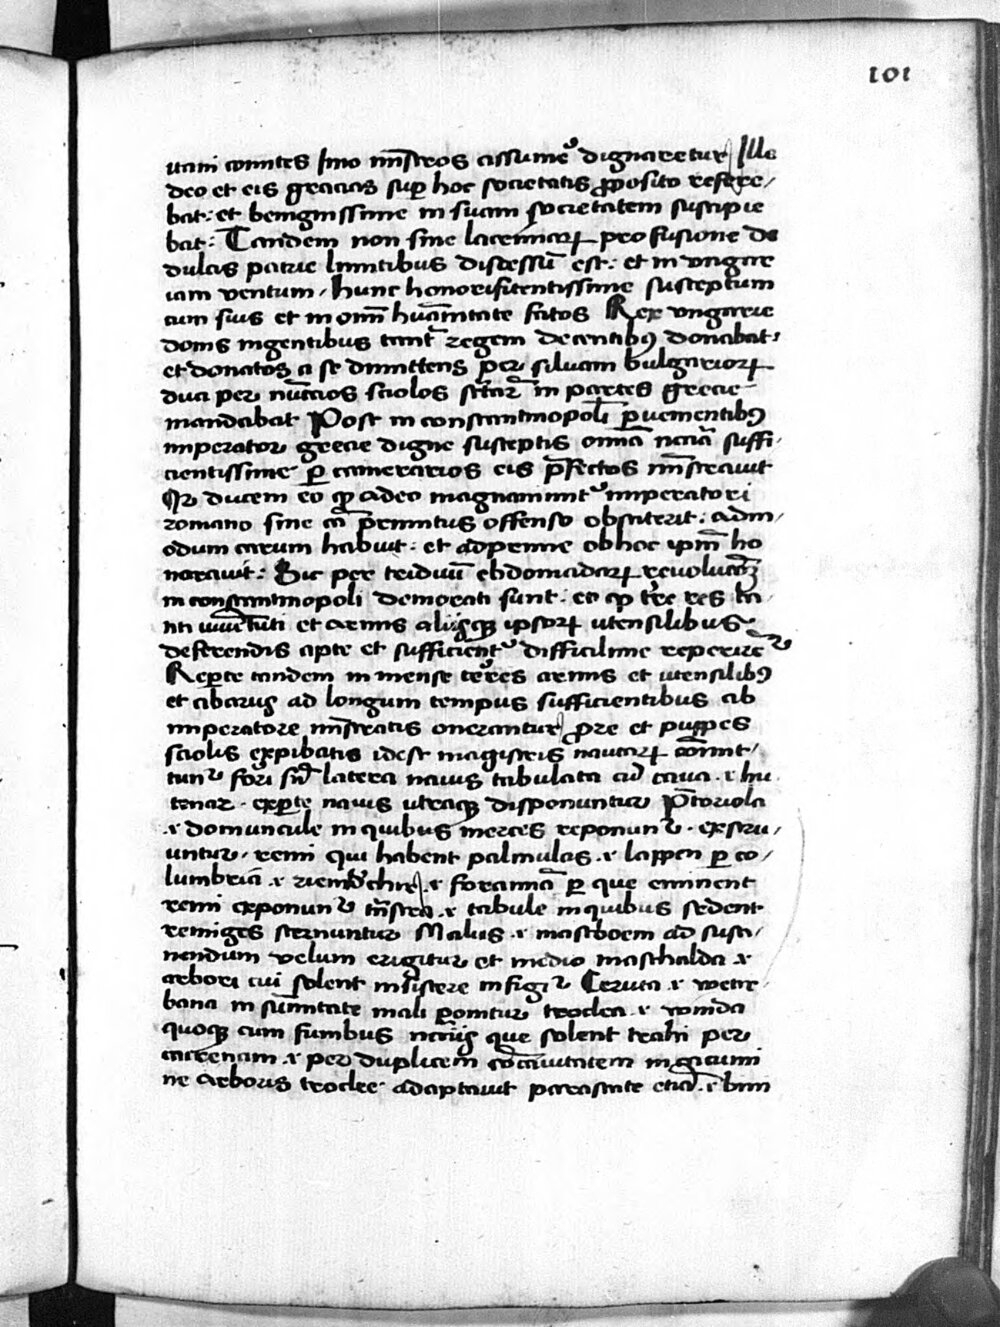 101
uam comites Imo ministros assumeʼ dignaretur Ille
deo et eis gracias suꝑ hoc societatis ꝓposito refere/
bat: et benignissime in suam societatem suscipie
bat: Tandem non sine lacrimaꝝ profusione de
dulcis patrie limitibus discessū est: et in vngare
iam ventum, hunc honorificentissime susceptum
cum suis et in om̄i hūanitate fotos Rex vngarie
donis ingentibus tantū regem decentibꝰ donabat,
et donatos a se dimittens per siluam bulgarioꝝ
duci per nūccios sciolos in partes grecie
mandabat Post in constantinopoli ꝑuenientibꝰ
imperator grecie digne susceptis om̄ia suffi,
cientissime ꝑ camerarios eis p̄fectos mīstrauit
ducem eo ꝙ adeo magnanimitʼ imperatori
romano sine cā penitus offenso obstiterit: adm/
odum carum habuit: et adprime ob hoc ip̄m ho
norauit: Sic per triduū ebdomadaꝝ reuolucōeꝫ
in constantinopoli demorati sunt: eo ꝙ tre res ta
nti iuuentuti et armis alijsqꝫ ipsoꝝ utensilibus
deferendis apte et sufficientʼ difficilime reperireʼ
Reperte tandem in mense teres armis et utensilibꝰ
et cibarijs ad longum tempus sufficientibus ab
imperatore mīstratis onerantur prore et puppes
sciolis expibatis idest magistris nautaꝝ
turʼ fori latera nauis tabulata ad caua .i. hu
tenar. expte nauis utraqꝫ disponuntur P̄toriola
.i. domuncule in quibus merces reponunʼ. exstru/
untur, remi qui habent palmulas .i. lappen ꝑ co/
lumbria .i. .i. foramina ꝑ que eminent
remi exponunʼ .i. tabule in quibus sedent
remiges sternuntur Malus .i. mastboem ad susti,
nendum velum erigitur et medio masthalda .i.
arbori cui solent insistere infigiʼ Ceruca .i. wetre
bana in sum̄itate mali ponitur troclea .i. winda
quoqꝫ cum funibus que solent trahi per
carenam .i. per duplicem in cacumi
ne arboris troclee adaptauit parastate .i. bini